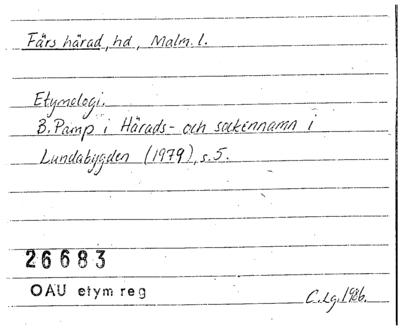 Färs härad, hd, Malm. l.
Etymologi.
B. Pamp i Härads- och sockennamn i
Lundabygden (1979), s. 5.
26683
OAU etym reg
C. Lg. 1986.